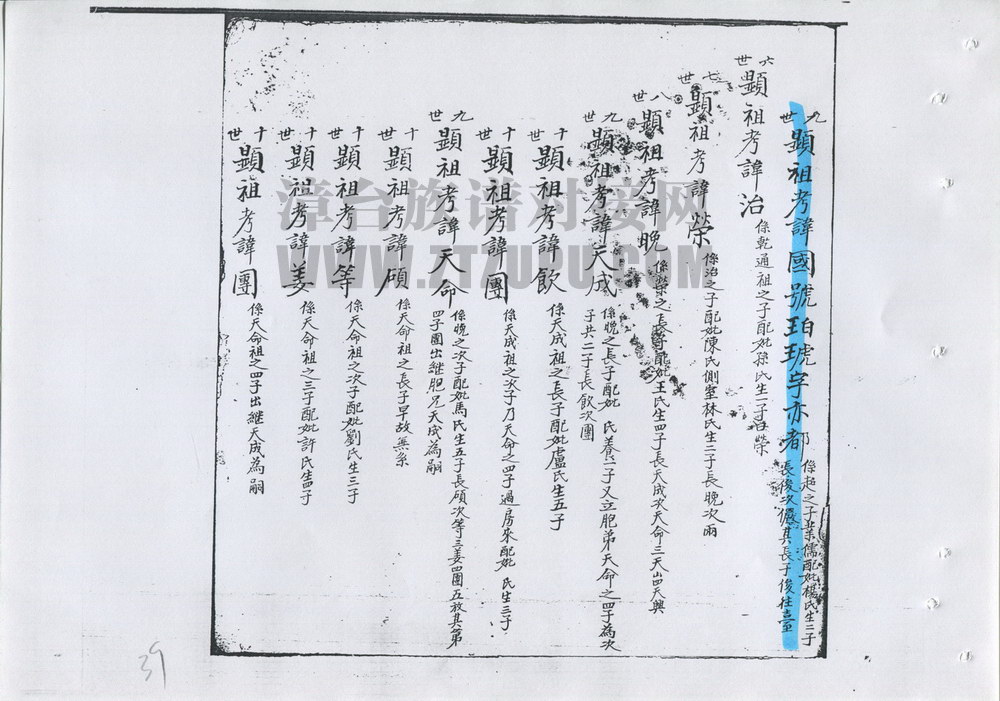 九世 顯祖考諱國號珀琥字亦都 係超之子業儒配妣楊氏生二子
長俊次儼其長子俊往臺
六世 顯祖考諱治 係乾通祖之子配妣孫氏生一子曰榮
七世 顯祖考諱榮 係治之子配妣陳氏側室林氏生二子長晚次雨
八世 顯祖考諱晚 係榮之長子配妣王氏生四子長天成次天命三天 四天興
九世 顯祖考諱天成 係晚之長子配妣 氏養一子又立胞弟天命之四子為次
子共二子長飲次團
十世 顯祖考諱飲 係天成祖之長子配妣盧氏生五子
十世 顯祖考諱團 係天成祖之次子乃天命之四子過房來配妣 氏生三子
九世 顯祖考諱天命 係晚之次子配妣馬氏生五子長碩次等三姜四團五放其第
四子團出繼胞兄天成為嗣
十 顯祖考諱碩 係天命祖之長子早故無系
十世 顯祖考諱等 係天命祖之次子配妣劉氏生三子
十世 顯祖考諱姜 係天命祖之三子配妣許氏生四子
十世 顯祖考諱團 係天命祖之四子出繼天成為嗣
漳台族谱对接网
WWW.ZTZUPU.COM
39